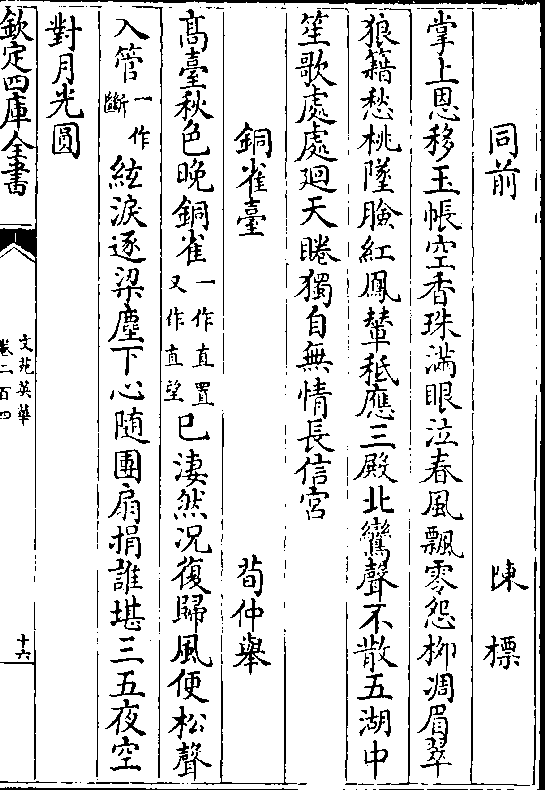 同前　陳標
掌上恩移玉帳空香珠滿眼泣春風飄零怨柳凋眉翠
狼籍愁桃墜臉紅鳳輦秪應三殿北鸞聲不散五湖中
笙歌處處廻天睠獨自無情長信宮
銅雀臺　荀仲舉
髙臺秋色晚銅雀一作直置又作直望已淒然况復歸風便松聲
入管一作斷絃淚逐梁塵下心随團扇捐誰堪三五夜空
對月光圓
欽定四庫全書
文苑英華
卷二百四
十六